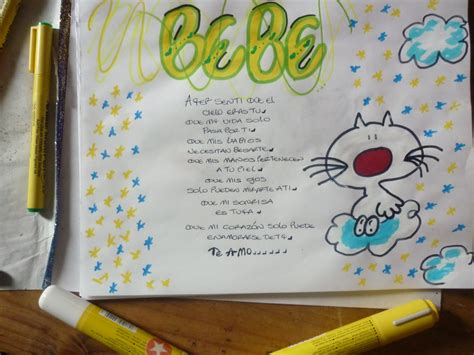 BEBE
AYER SENTI QUE EL
CIELO ERAS TU
QUE MI VIDA SOLO
PASA POR TI
QUE MIS LABIOS
NECESITAN BESARTE
QUE MIS MANOS PERTENECEN
A TU PIEL
QUE MIS OJOS
SOLO PUEDEN MIRARTE A TI
QUE MI SONRISA
ES TUYA
QUE MI CORAZÓN SOLO PUEDE
ENAMORARSE DE TI
TE AMO......